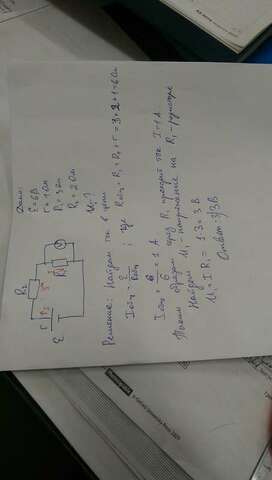 Дано:
ε=6В
r=1Ом
R₁=3Ом
R₂=2Ом
U₁-?
R₂
R₁
ε
r
Решение: Найдём ток в цепи
Iобщ = ε/Rобщ ; где Rобщ = R₁+R₂+r = 3+2+1=6Ом
Iобщ = 6/6 = 1 А
Таким образом через R₁ проходит ток I=1А
Найдём U₁-напряжение на R₁-резисторе
U₁=IR₁ = 1·3=3В
Ответ: 3В